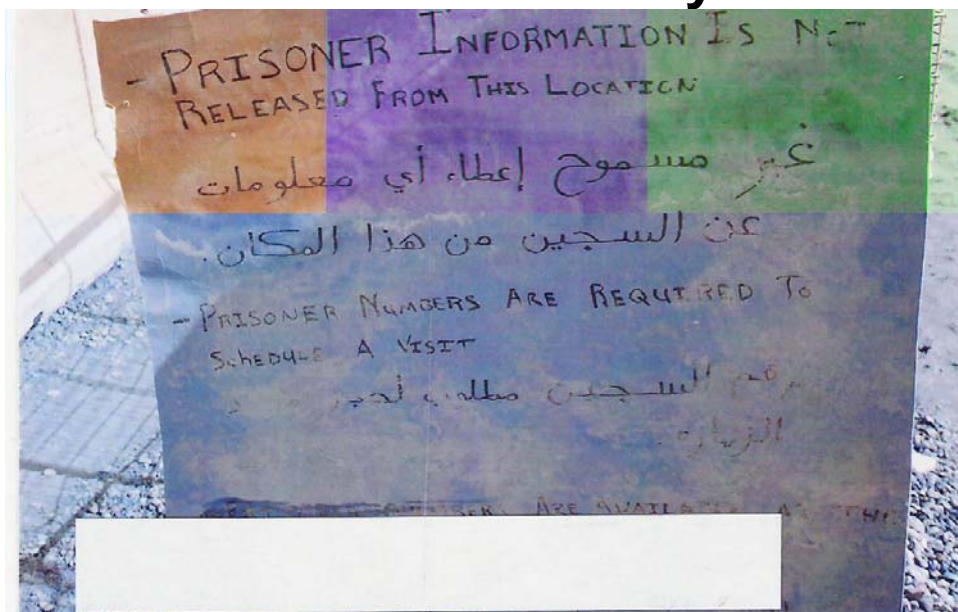 - PRISONER INFORMATION IS NOT
RELEASED FROM THIS LOCATION
غير مسموح إعطاء أي معلومات
عن السجين من هذا المكان.
- PRISONER NUMBERS ARE REQUIRED TO
SCHEDULE A VISIT
رقم السجين مطلوب
الزيارة.
ARE AVAILABLE AT THE